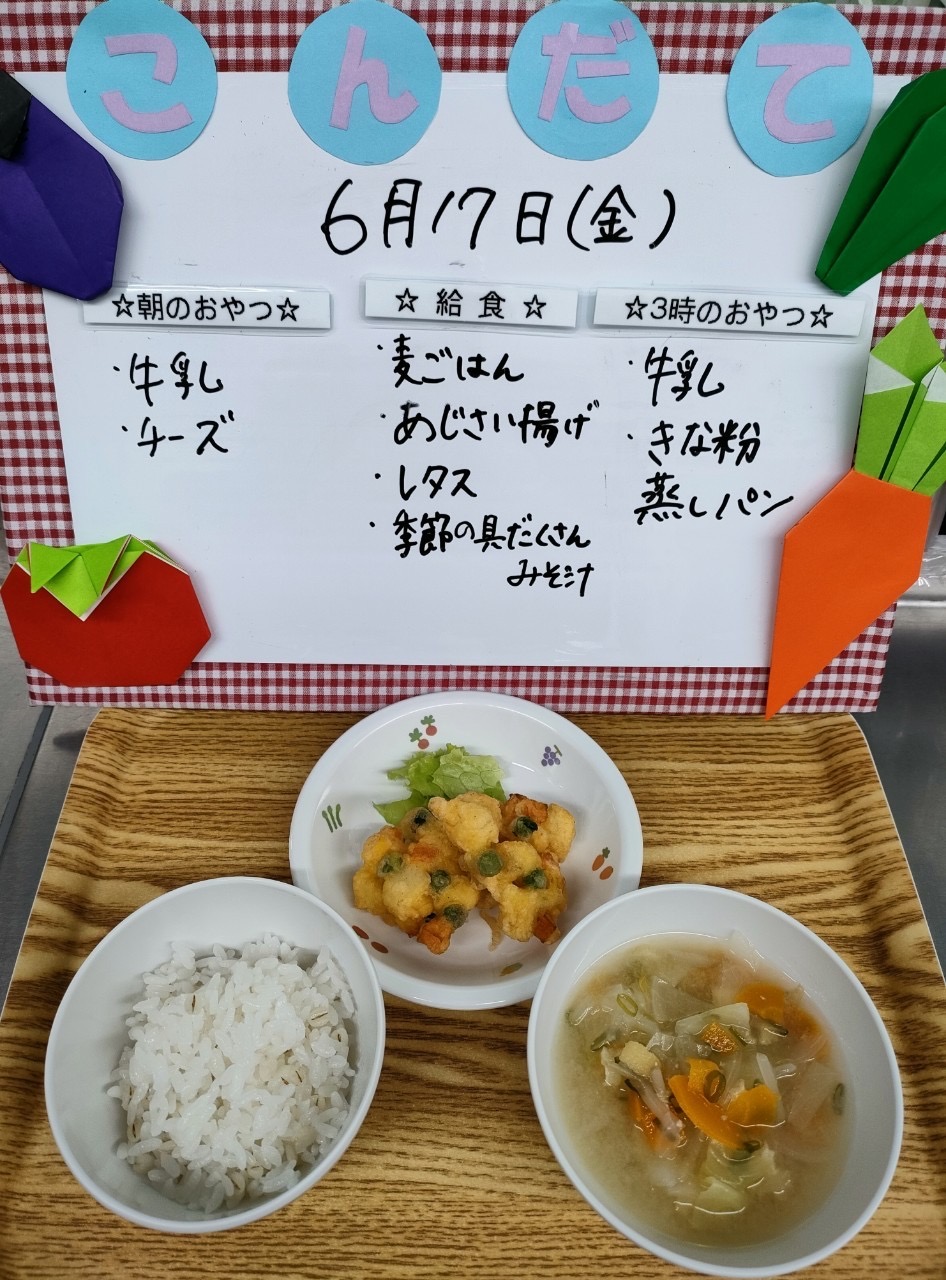 こんだて
6月17日(金)
☆朝のおやつ☆
・牛乳
・チーズ
☆ 給食 ☆
・麦ごはん
・あじさい揚げ
・レタス
・季節の具だくさん
みそ汁
☆3時のおやつ☆
・牛乳
・きな粉
蒸しパン